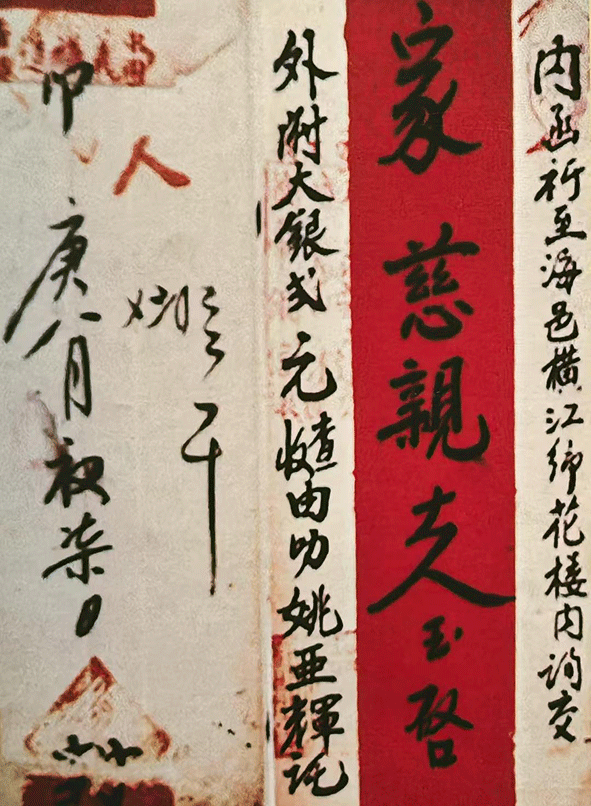 内函祈至海邑橫江鄉花楼内詢交
家慈親大人玉啓
外附大銀弍元查收由叻姚亞輝託
人
庚八月初柒日